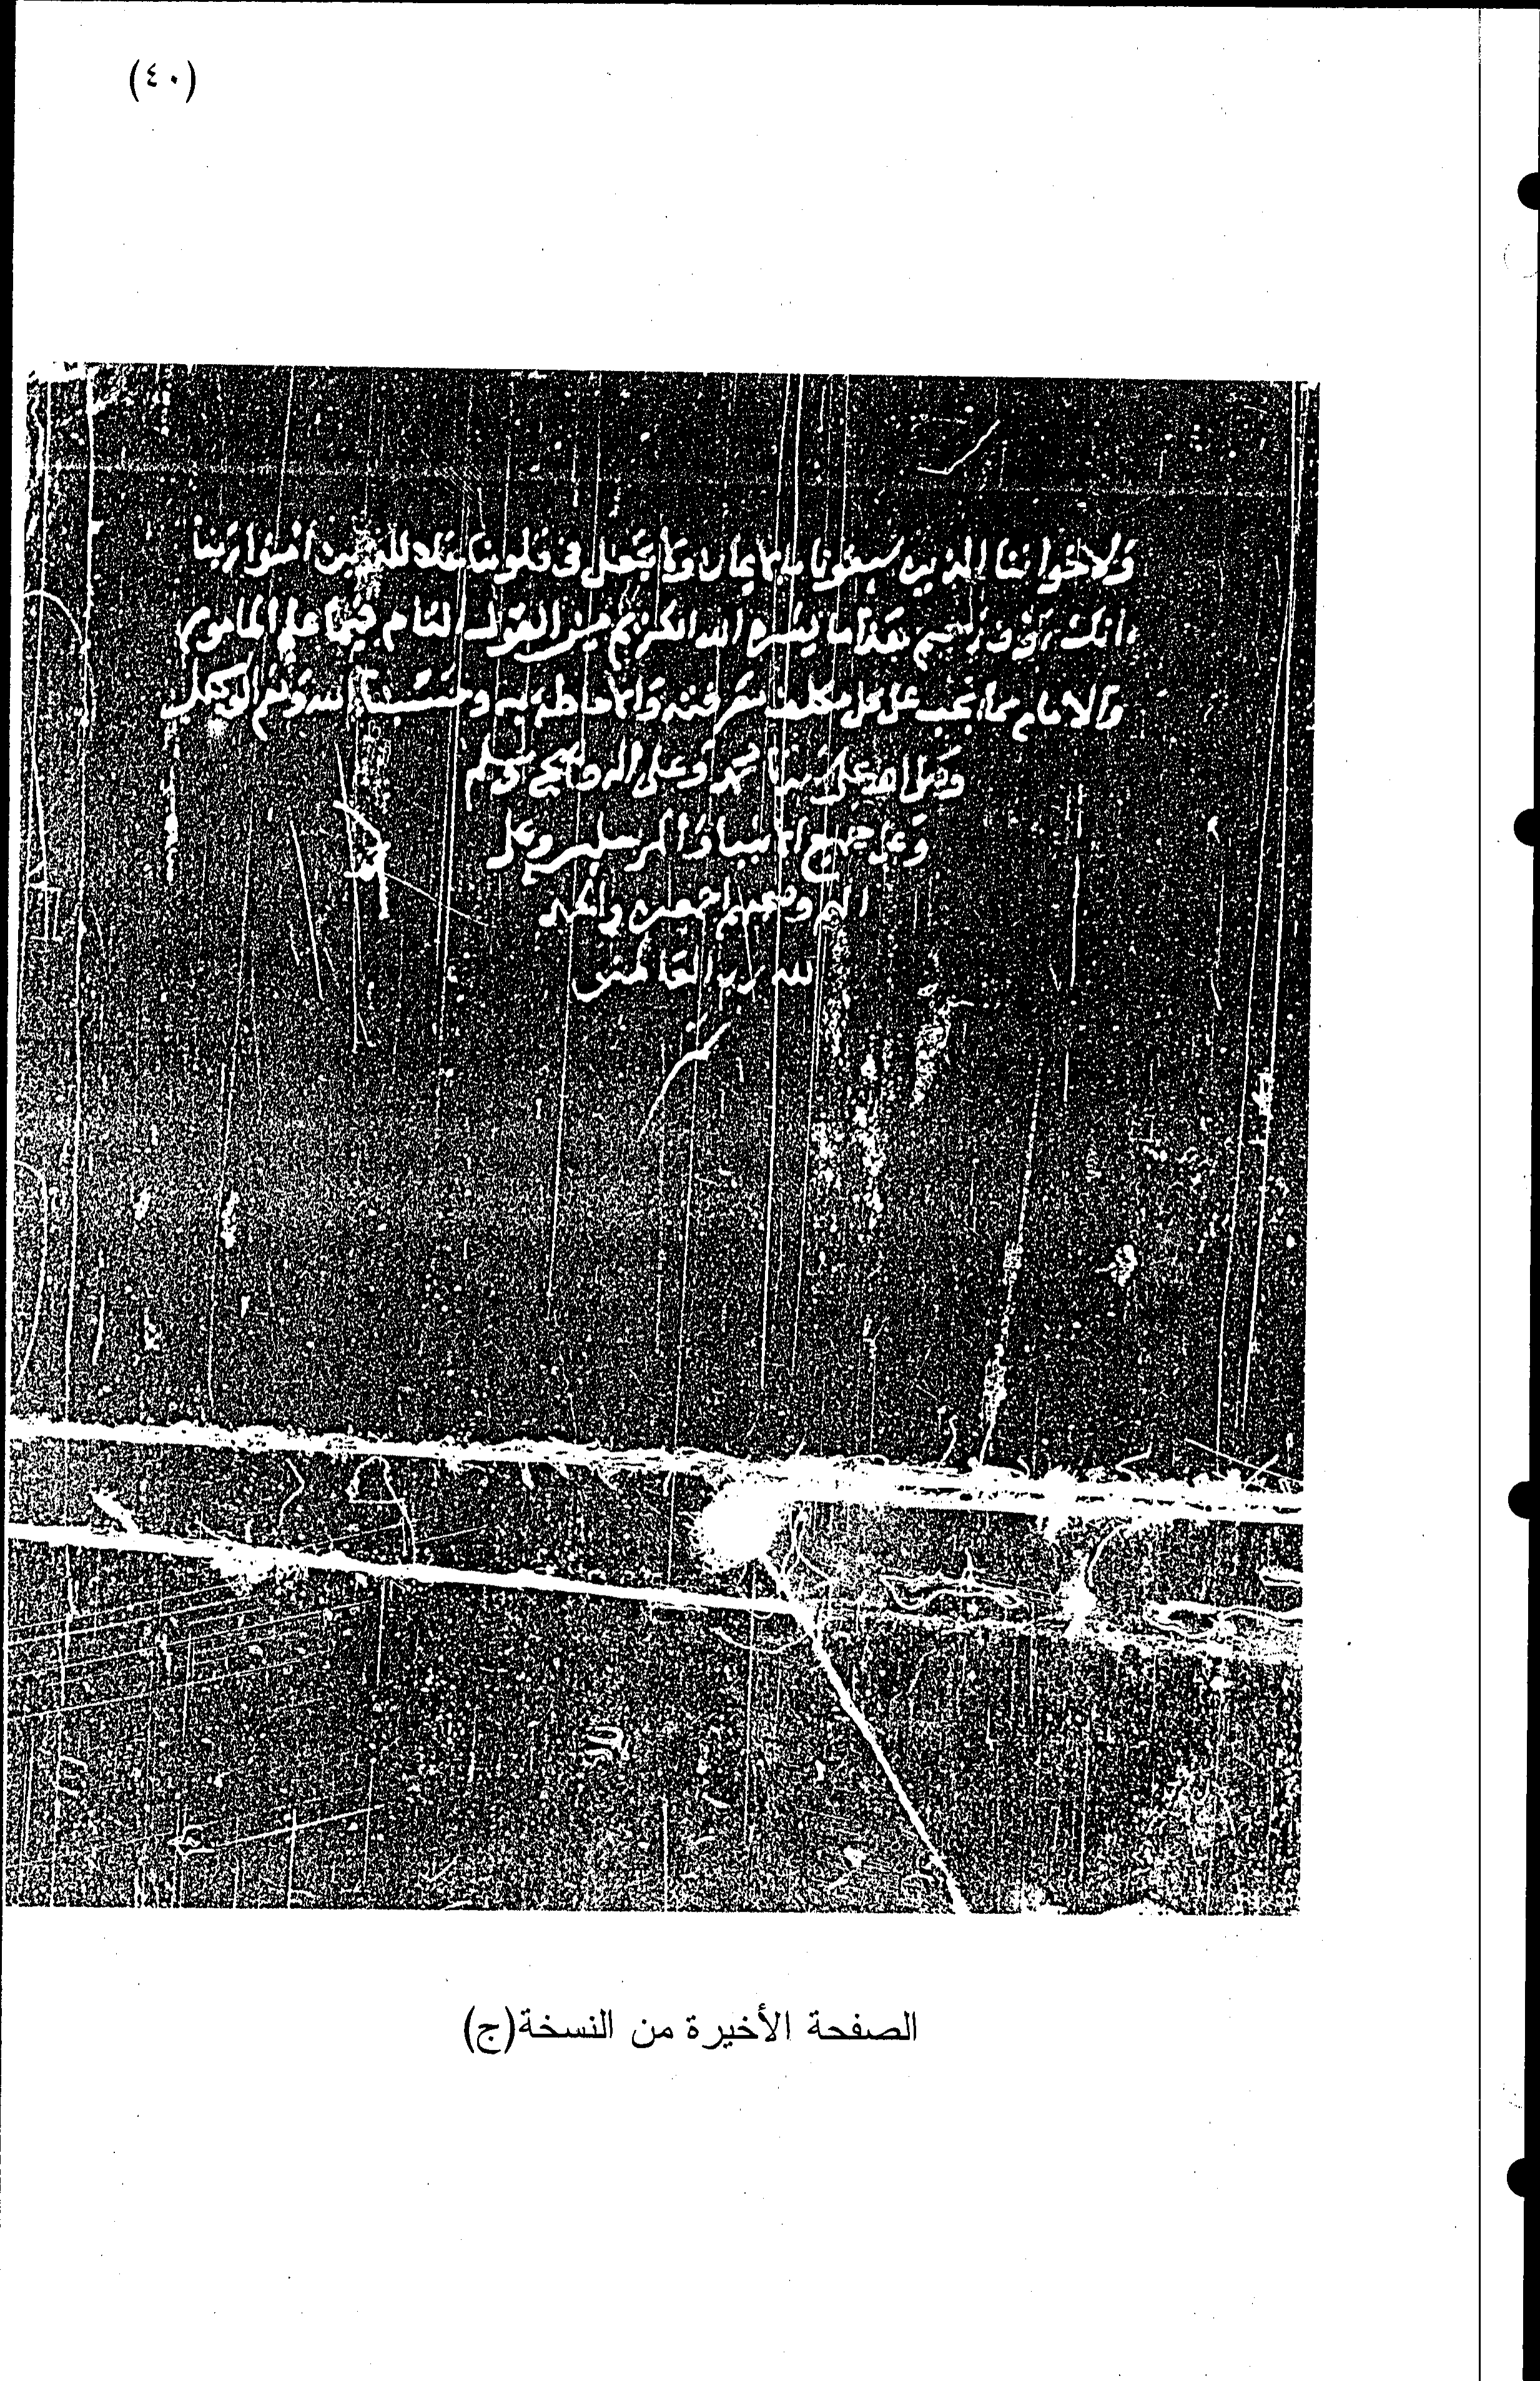 (٤٠)
ولاخواننا الذين سبقونا بالايمان ولا تجعل في قلوبنا غلا للذين امنوا ربنا
انك رؤوف رحيم بعد ما يسره الله الكريم من القول التام فيما على الماموم
والامام مما يجب على كل مكلف معرفته والاحاطة به وحسبنا الله ونعم الوكيل
وصلى الله على سيدنا محمد وعلى اله وصحبه وسلم
وعلى جميع الانبيا والمرسلين وعلى
الهم وصحبهم اجمعين والحمد
لله رب العالمين
الصفحة الأخيرة من النسخة(ج)